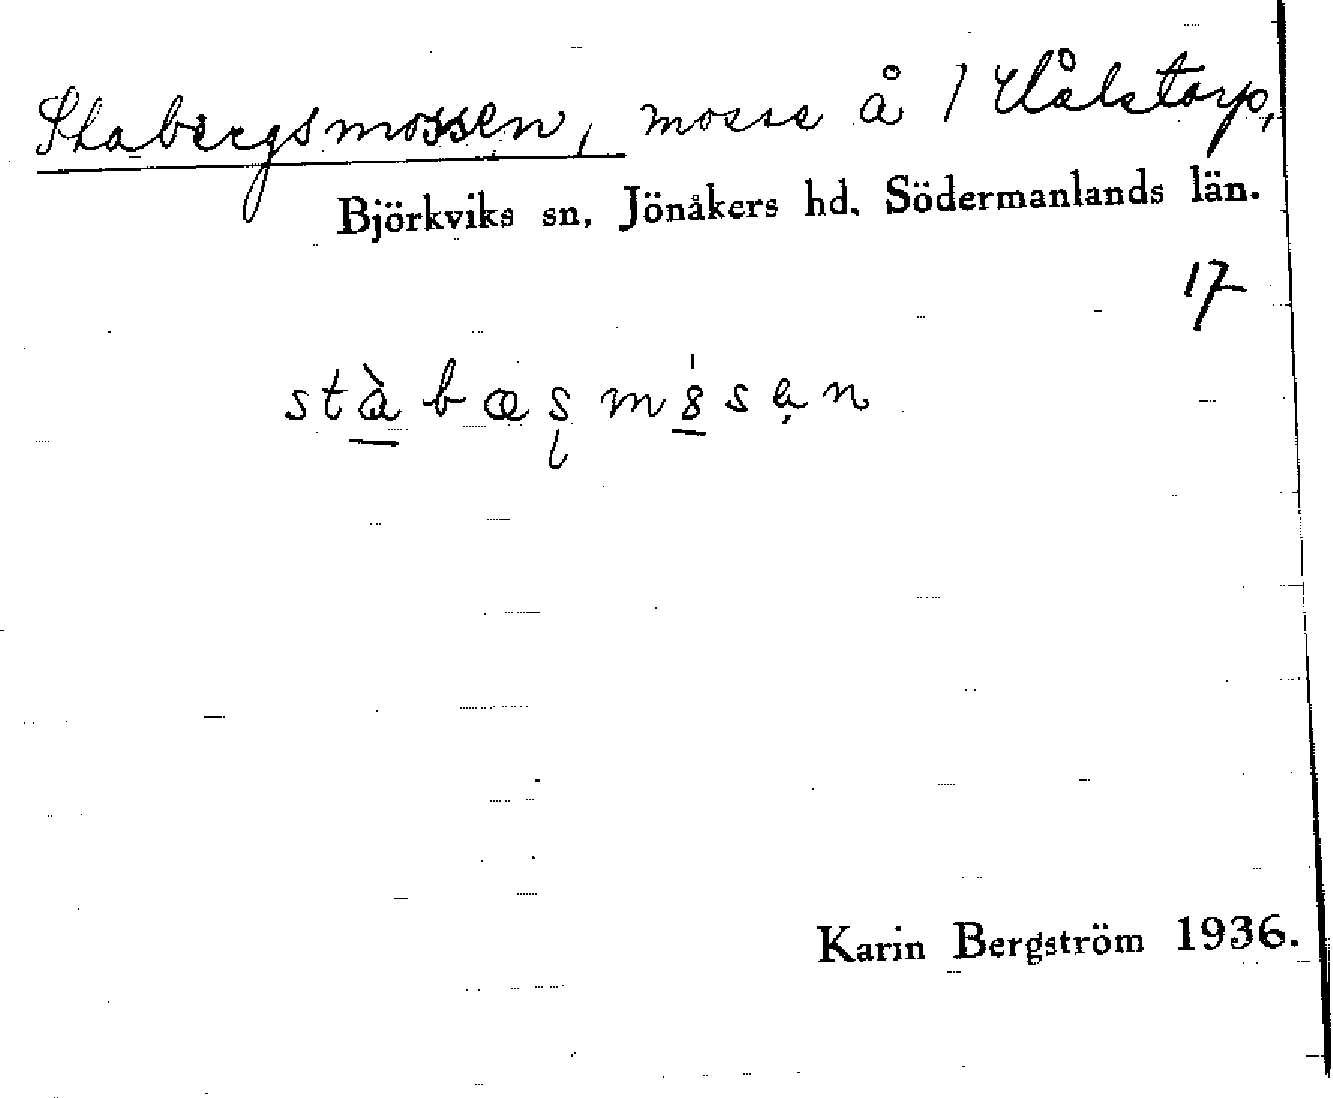 Stabergsmossen, mosse å 1
Björkviks sn, Jönåkers hd. Södermanlands län.
17
stàbæʂmósən
Karin Bergström 1936.